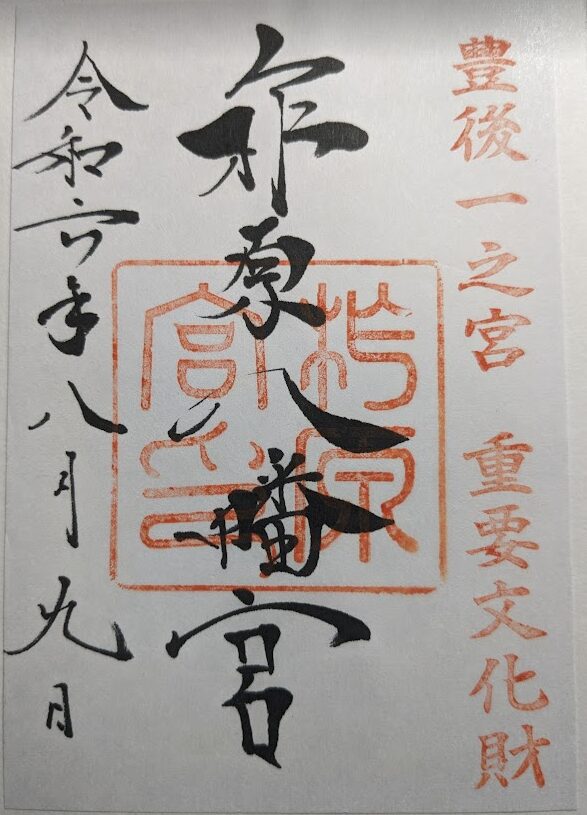 豐後一之宮 重要文化財
柞原八幡宮
柞原
宮印
令和六年八月九日